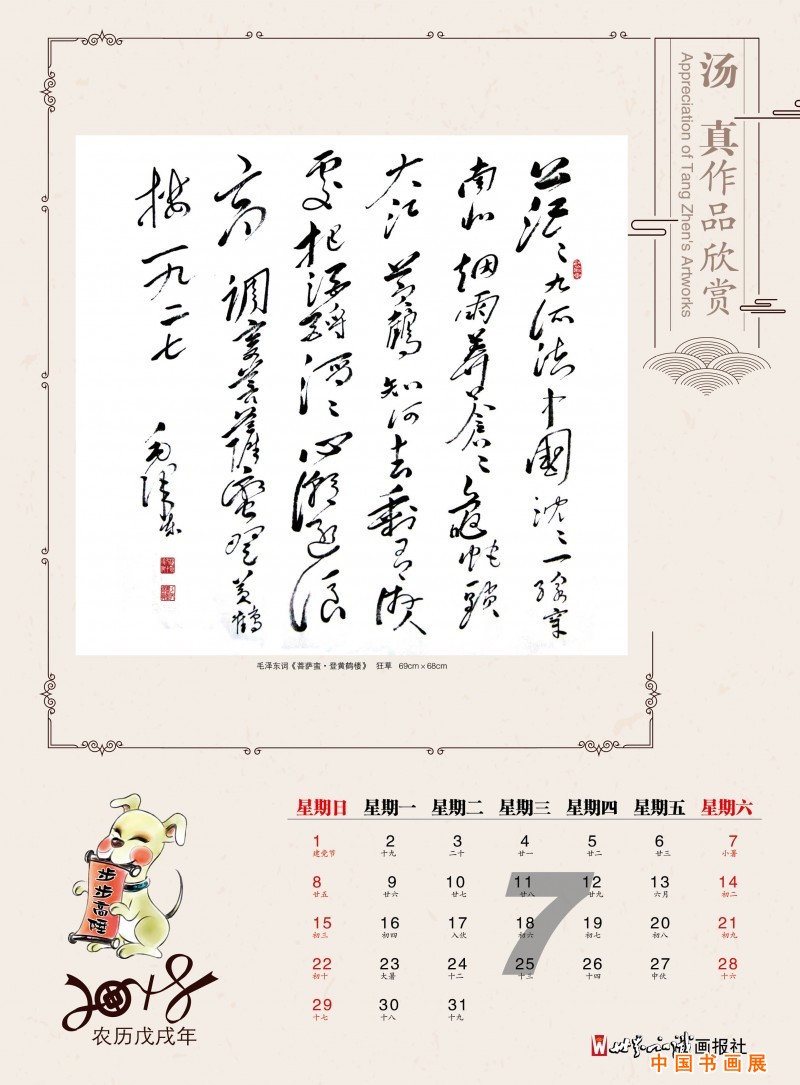 汤真作品欣赏
Appreciation of Tang Zhen's Artworks
茫〻九派流中國沈〻一線穿
南北烟雨莽蒼〻龜蛇鎖
大江黃鶴知何去剩有遊人
處把酒酹滔〻心潮逐浪
高 調寄菩薩蠻登黃鶴
樓 一九二七 毛澤東
毛泽东词《菩萨蛮·登黄鹤楼》 狂草 69cm×68cm
步步高陞
2018
农历戊戌年
7
星期日 星期一 星期二 星期三 星期四 星期五 星期六
1 2 3 4 5 6 7
建党节 十九 二十 廿一 廿二 廿三 小暑
8 9 10 11 12 13 14
廿五 廿六 廿七 廿八 廿九 六月 初二
15 16 17 18 19 20 21
初三 初四 入伏 初六 初七 初八 初九
22 23 24 25 26 27 28
初十 大暑 十二 十三 十四 中伏 十六
29 30 31
十七 十八 十九
W 世界知识画报社
中国书画展